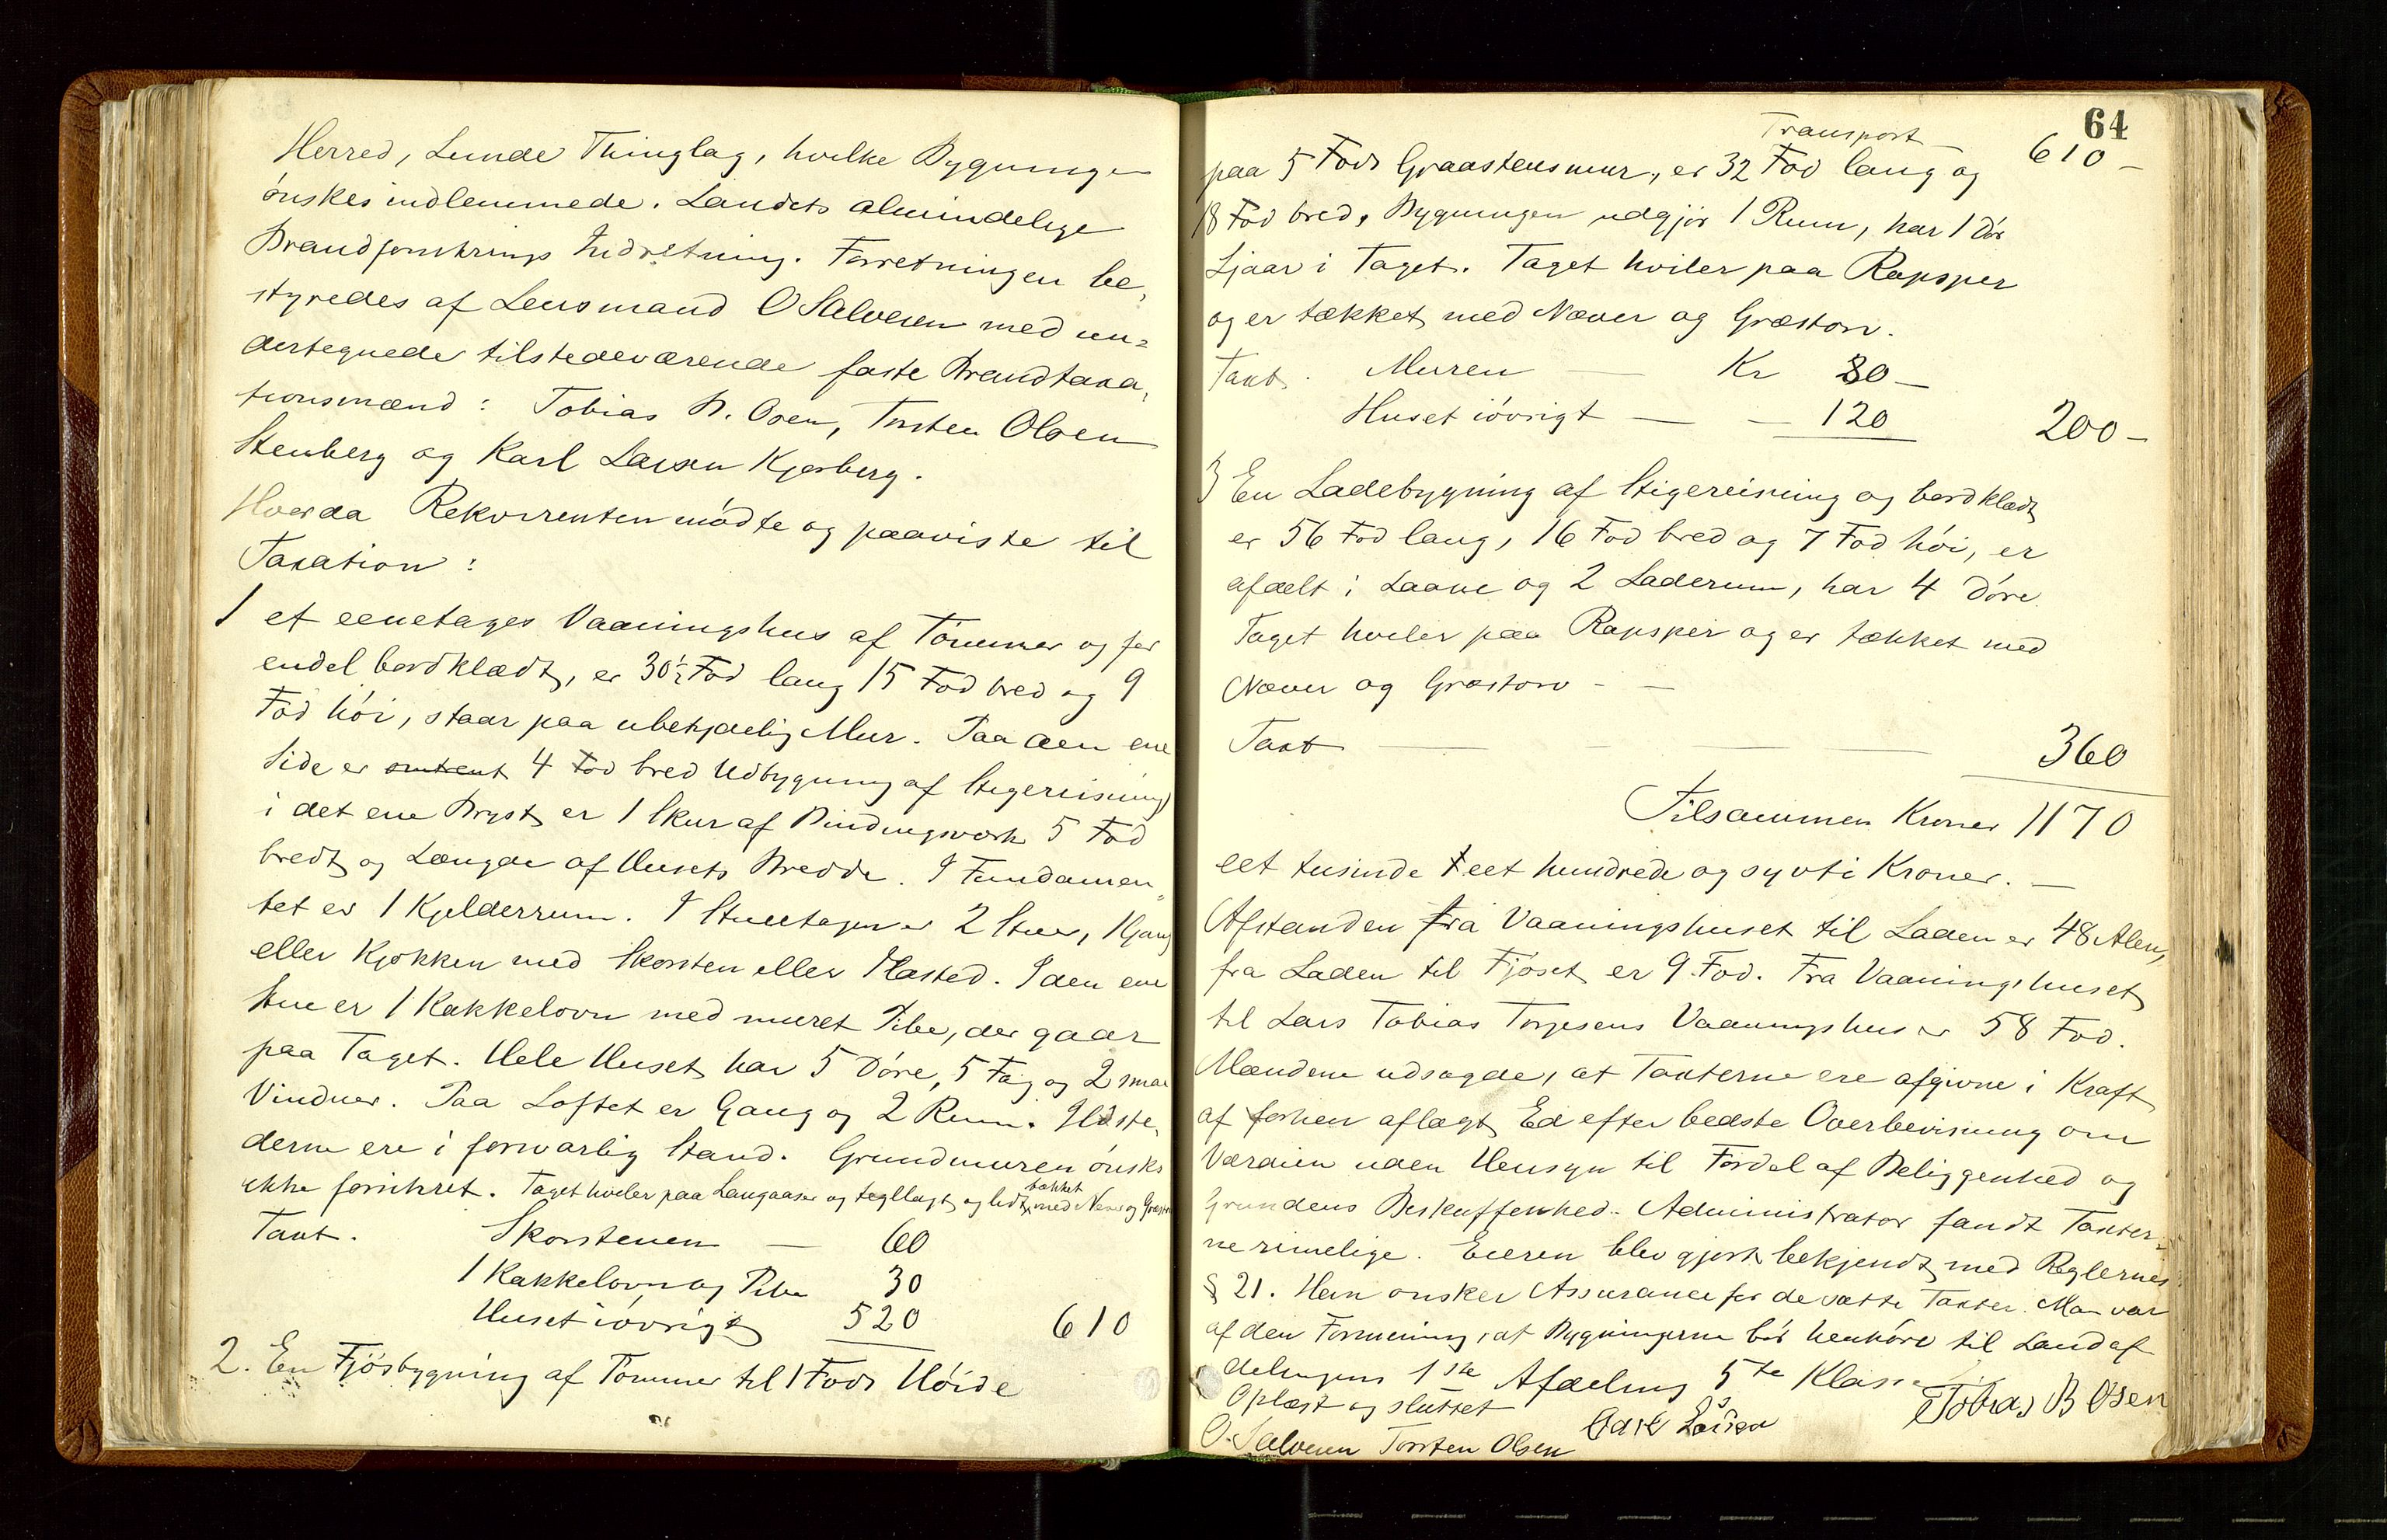 Herred, Lunde Thinglag, hvilke Bygninger
ønskes indlemmede i Landets almindelige
Brandforsikrings Indretning. Forretningen be,
styredes af Lensmand O Salvesen med un=
dertegnede tilstedeværende faste Brandtaxa,
tionsmænd: Tobias B. Osen, Torsten Olsen
Stenberg og Karl Larsen Kjørberg.
Hvorda Rekvirenten mødte og paaviste til
Taxation:
1 et eenetages Vaaningshus af Tømmer og for
endel bordklædt, er 30½ Fod lang 15 Fod bred og 9
Fod høi, staar paa ubetydelig Mur. Paa den ene
Side er omtrent 4 Fod bred Udbygning af Stigereisning
i det ene Bryst er 1 Skur af Bindingsværk 5 Fod
bredt og Længde af Husets Bredde. I Fundamen,
tet er 1 Kjelderrum. I Stueetagen er 2 Stuer, 1 Gang
eller Kjøkken med Skorsten eller Ildsted. I den ene
Stue er 1 Kakkelovn med muret Pibe, der gaar
paa Taget. Hele Huset har 5 Døre, 5 Fag og 2 smaa
Vinduer. Paa Loftet er Gang og 2 Rum. Ildste,
derne ere i forsvarlig Stand. Grundmuren ønskes
ikke forsikret. Taget hviler paa Langaaser og tegllagt og lidt tækket med Næver og Græstorv
Taxt. Skorstenen — 60
1 Kakkelovn og Pibe 30
Huset iøvrigt 520 610
2. En Fjøsbygning af Tømmer til 1 Fods Høide
64
Transport 610 –
paa 5 Fods Graastensmur, er 32 Fod lang og
18 Fod bred, Bygningen udgjør 1 Rum, har 1 Dør
Ljaar i Taget. Taget hviler paa Rapsper
og er tækket med Næver og Græstorv.
Taxt. Muren — Kr 80 –
Huset iøvrigt — — 120 200 –
3 En Ladebygning af Stigereisning og bordklædt
er 56 Fod lang, 16 Fod bred og 7 Fod høi, er
afdelt i Laave og 2 Laderum, har 4 Døre.
Taget hviler paa Rapsper og er tækket med
Næver og Græstorv – –
Taxt — — — 360
Tilsammen Kroner 1170
eet tusinde eet hundrede og sytti Kroner. —
Afstanden fra Vaaningshuset til Laden er 48 Alen,
fra Laden til Fjøset er 9 Fod. Fra Vaaningshuset
til Lars Tobias Torjesens Vaaningshus er 58 Fod.
Mændene udsagde, at Taxterne ere afgivne i Kraft
af forhen aflagt Ed efter bedste Overbevisning om
Værdien uden Hensyn til Fordel af Beliggenhed og
Grundens Beskaffenhed. Administrator fandt Taxter=
ne rimelige. Eieren blev gjort bekjendt med Reglernes
§ 21. Han ønsker Assurance for de satte Taxter. Man var
af den Formening, at Bygningerne bør henhøre til Landaf
delingens 1ste Afdeling 5te Klasse
Oplæst og sluttet Tobias B Osen
O. Salvesen Torsten Olsen Carl Larsen